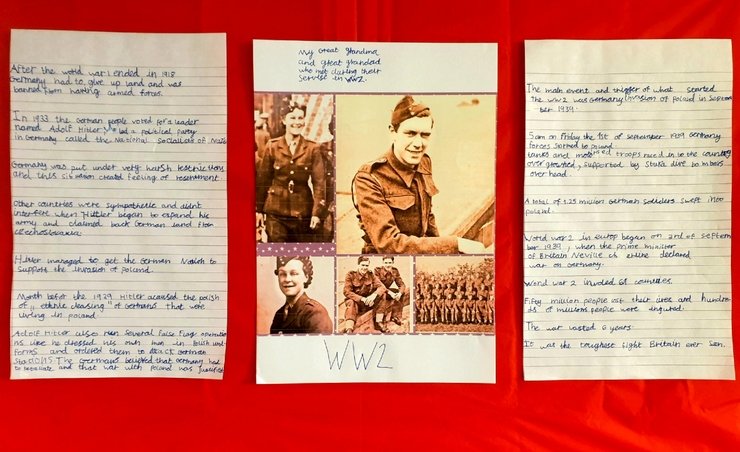 After the world war 1 ended in 1918
Germany had to give up land and was
banned from having armed forces.
In 1933 the German people voted for a leader
named Adolf Hitler, led a political party
in Germany called the National Socialists or
Germany was put under very harsh
and this situation created feeling of resentment
Other countries were sympathetic and didnt
interfere when Hitler began to expand his
army and claimed back German land from
Hitler managed to get the German Nation to
support the invasion of poland.
Month befor the 1939 Hitler acussed the polish
of "ethnic cleasing" of Germans that were
living in poland.
Adolf Hitler also ran several False Flags operations
he dressed his own men in Polish uni-
forms and ordered them to attack German
stations The Germans believed that Germany had
to retaliate and that war with Poland was
My Great Grandma
and Great Grandad
who met during their
service in WW2.
WW2
The main event and trigger of what started
The WW2 was Germany invasion of Poland in Septem
ber 1939.
5am on Friday the 1st of September 1939 Germany
forces stormed to poland
tanks and motorised troops raced in to the country
over ground, supported by stuka dive bombers
over head.
A total of 1.25 million German soldiers swept into
poland.
World war 2 in europ began on 2nd of septem
ber 1939, when the prime minister
of Britain Nevile declared
war on Germany.
World war 2 involed 61 countries.
Fifty million people lost their lives and hundre
ds of millions people were injured.
The war lasted 6 years.
It was the toughest fight Britain ever seen.